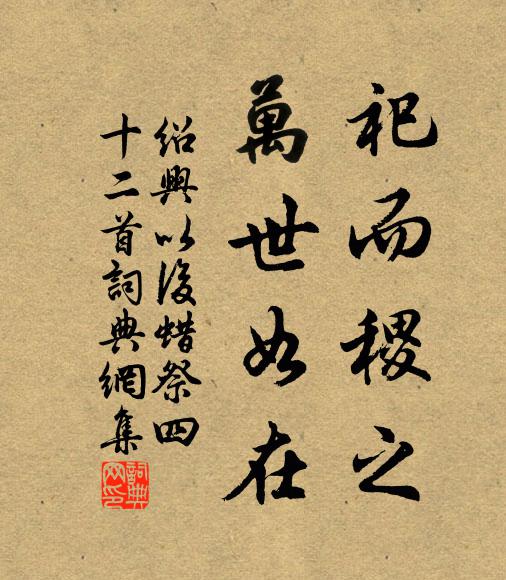 祀而稷之
萬世如在
紹興以後蜡祭四
十二首詞典網集
詞典網印